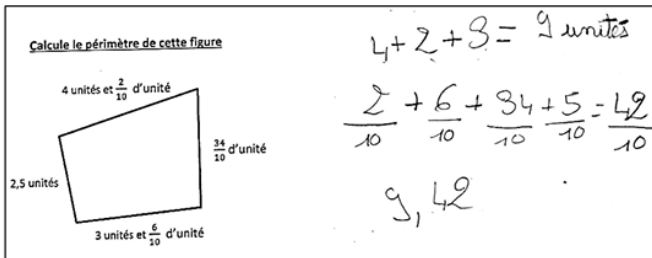 Calcule le périmètre de cette figure
4 unités et 2/10 d'unité
34/10 d'unité
2,5 unités
3 unités et 6/10 d'unité
4+2+3= 9 unités
2/10 + 6/10 + 34/10 + 5/10 = 42/10
9,42